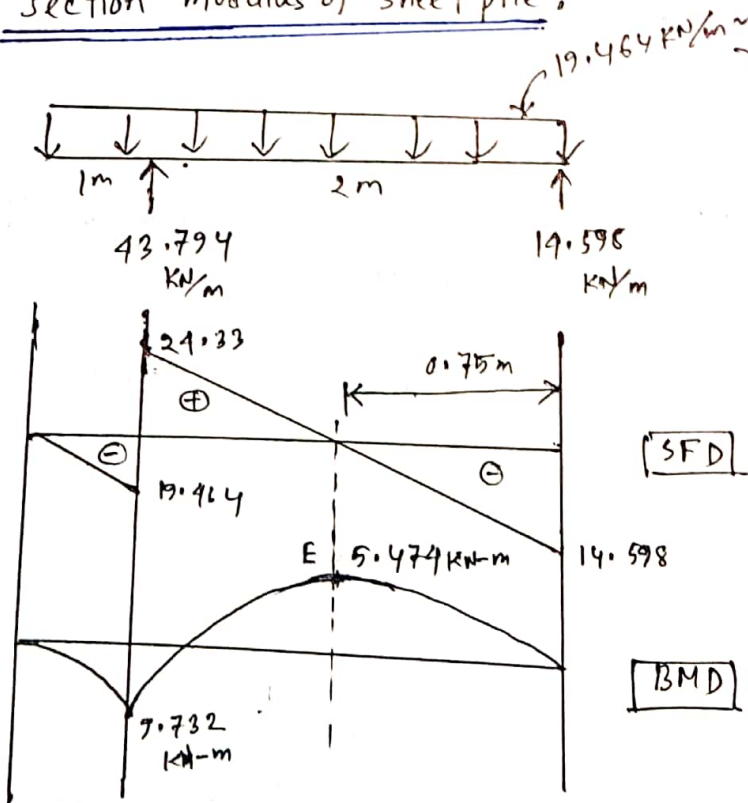 section modulus of sheet pile.
19.464 KN/m²
1m 2m
43.794 KN/m
14.598 KN/m
24.33
0.75m
⊕
⊖
⊖
SFD
19.464
E 5.474 KN-m
14.598
BMD
9.732 KN-m